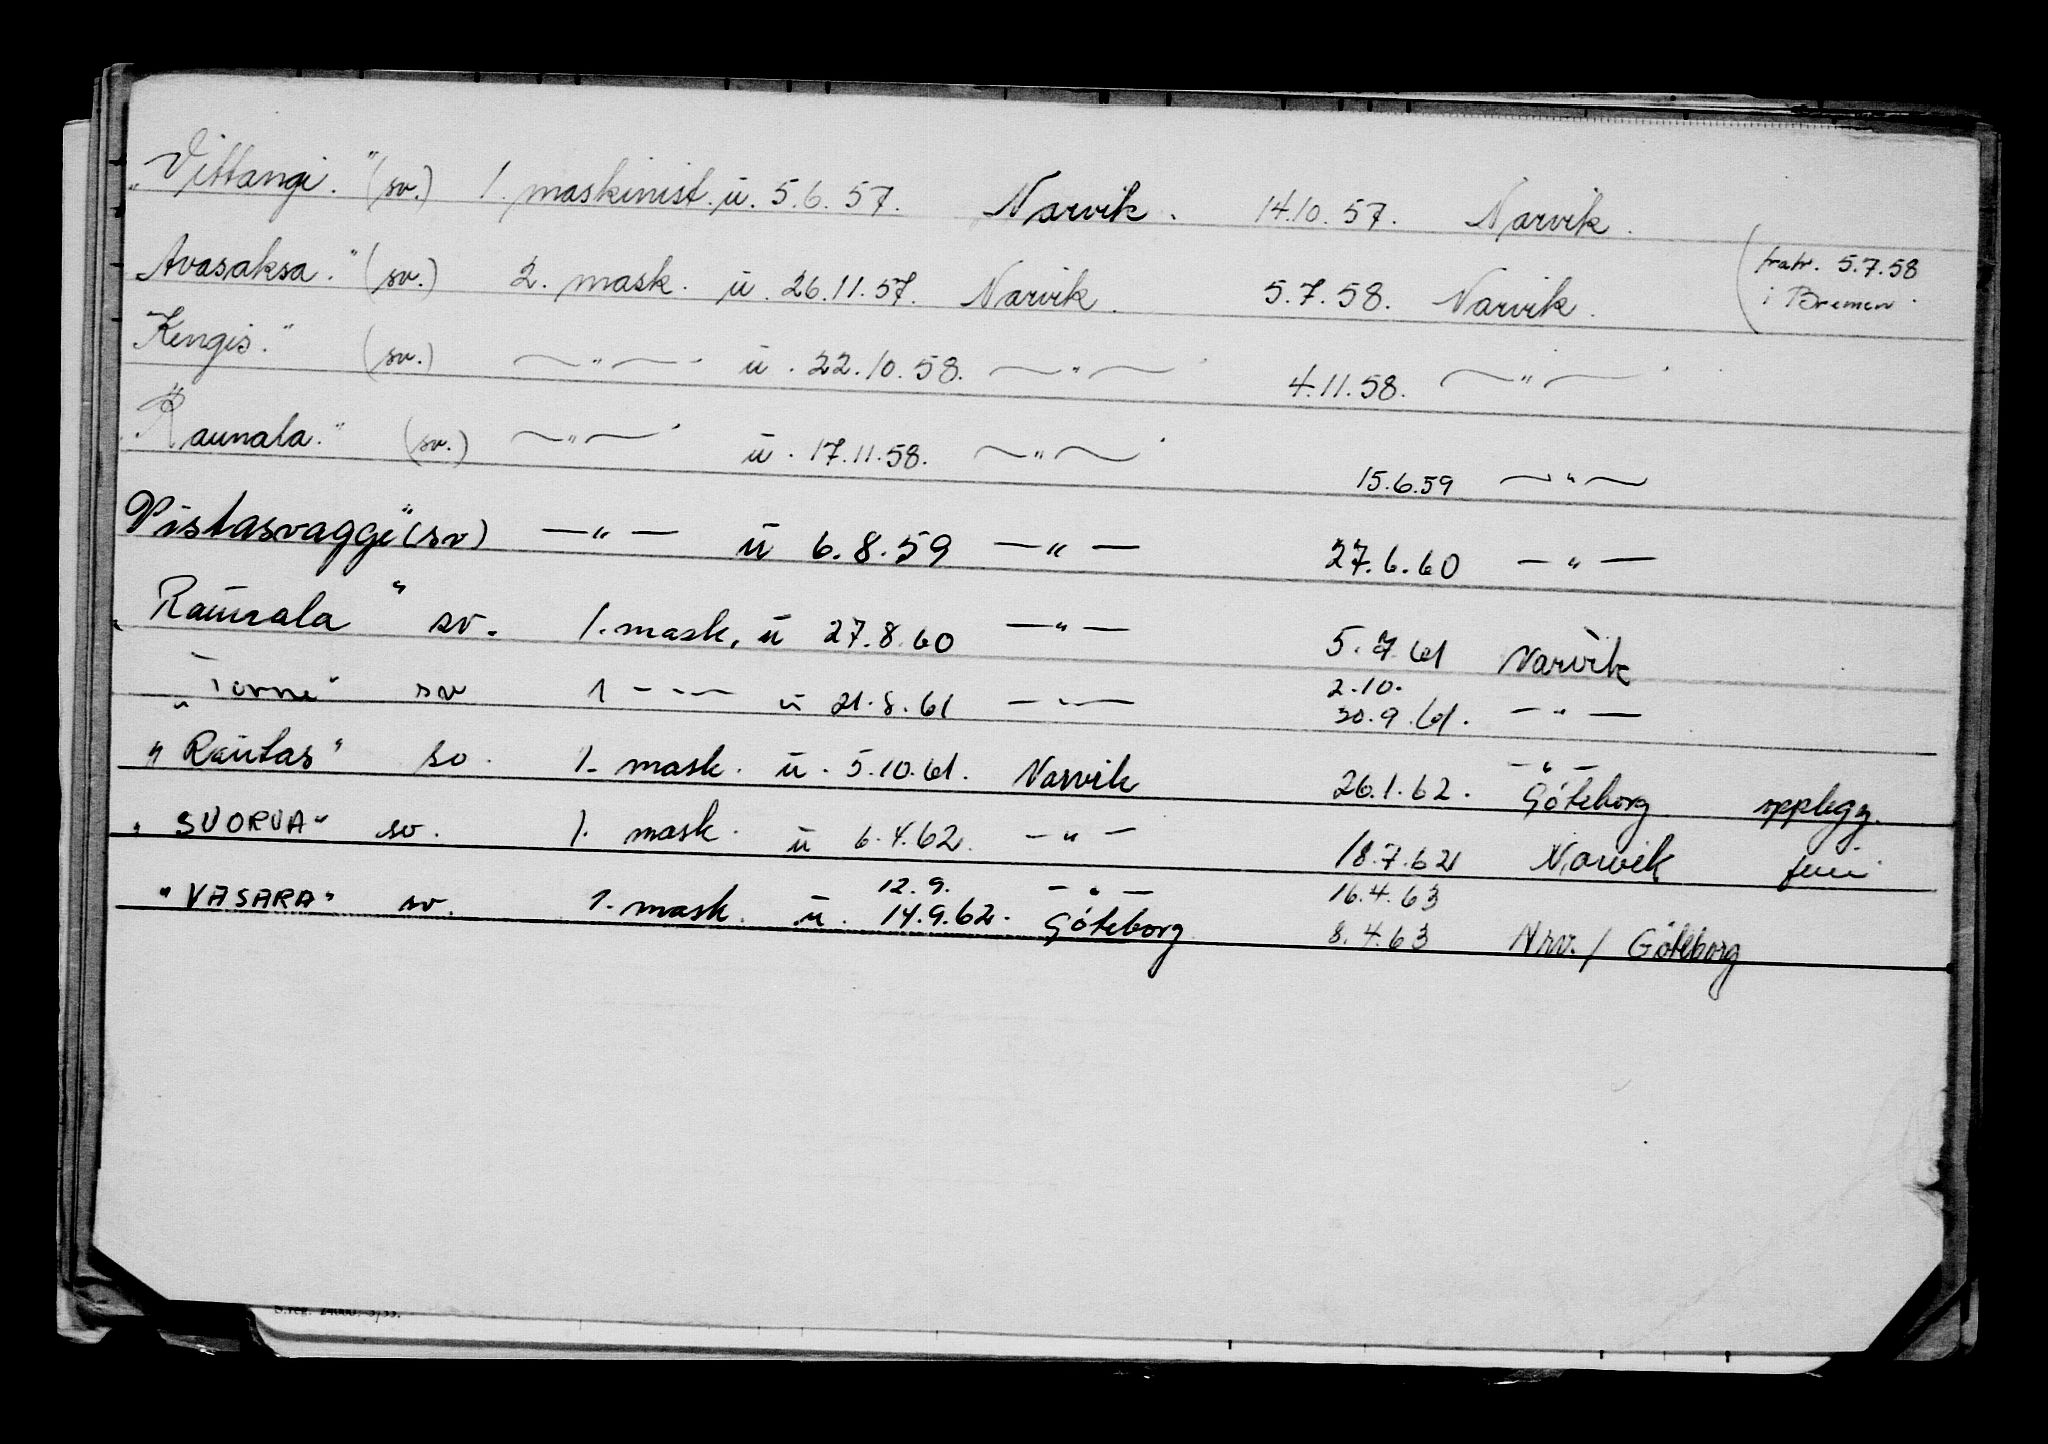 „Vittangi." (sv.) 1. maskinist. ü. 5.6.57. Narvik. 14.10.57. Narvik.
Avasaksa." (sv.) 2. mask. ü. 26.11.57. Narvik. 5.7.58. Narvik. (fratr. 5.7.58
i Bremen.
Kengis." (sv.) —"— ü. 22.10.58. —"— 4.11.58. —"—
"Raunala." (sv.) —"— ü. 17.11.58. —"— 15.6.59 —"—
Vistasvagge" (sv) —"— ü 6.8.59 —"— 27.6.60 —"—
„Raunala" sv. 1. mask, ü 27.8.60 —"— 5.7.61 Narvik
2.10.
"Torne" sv 1 —"— ü 21.8.61 —"— 30.9.61. —"—
—"—
"Rautas" sv. 1. mask. ü. 5.10.61. Narvik 26.1.62. Göteborg opplegg.
"SUORVA" sv. 1. mask. ü 6.4.62. —"— 18.7.62 Narvik ferie
12.9. —"— 16.4.63
"VASARA" sv. 1. mask. ü. 14.9.62. Göteborg 8.4.63 Nrv. / Göteborg